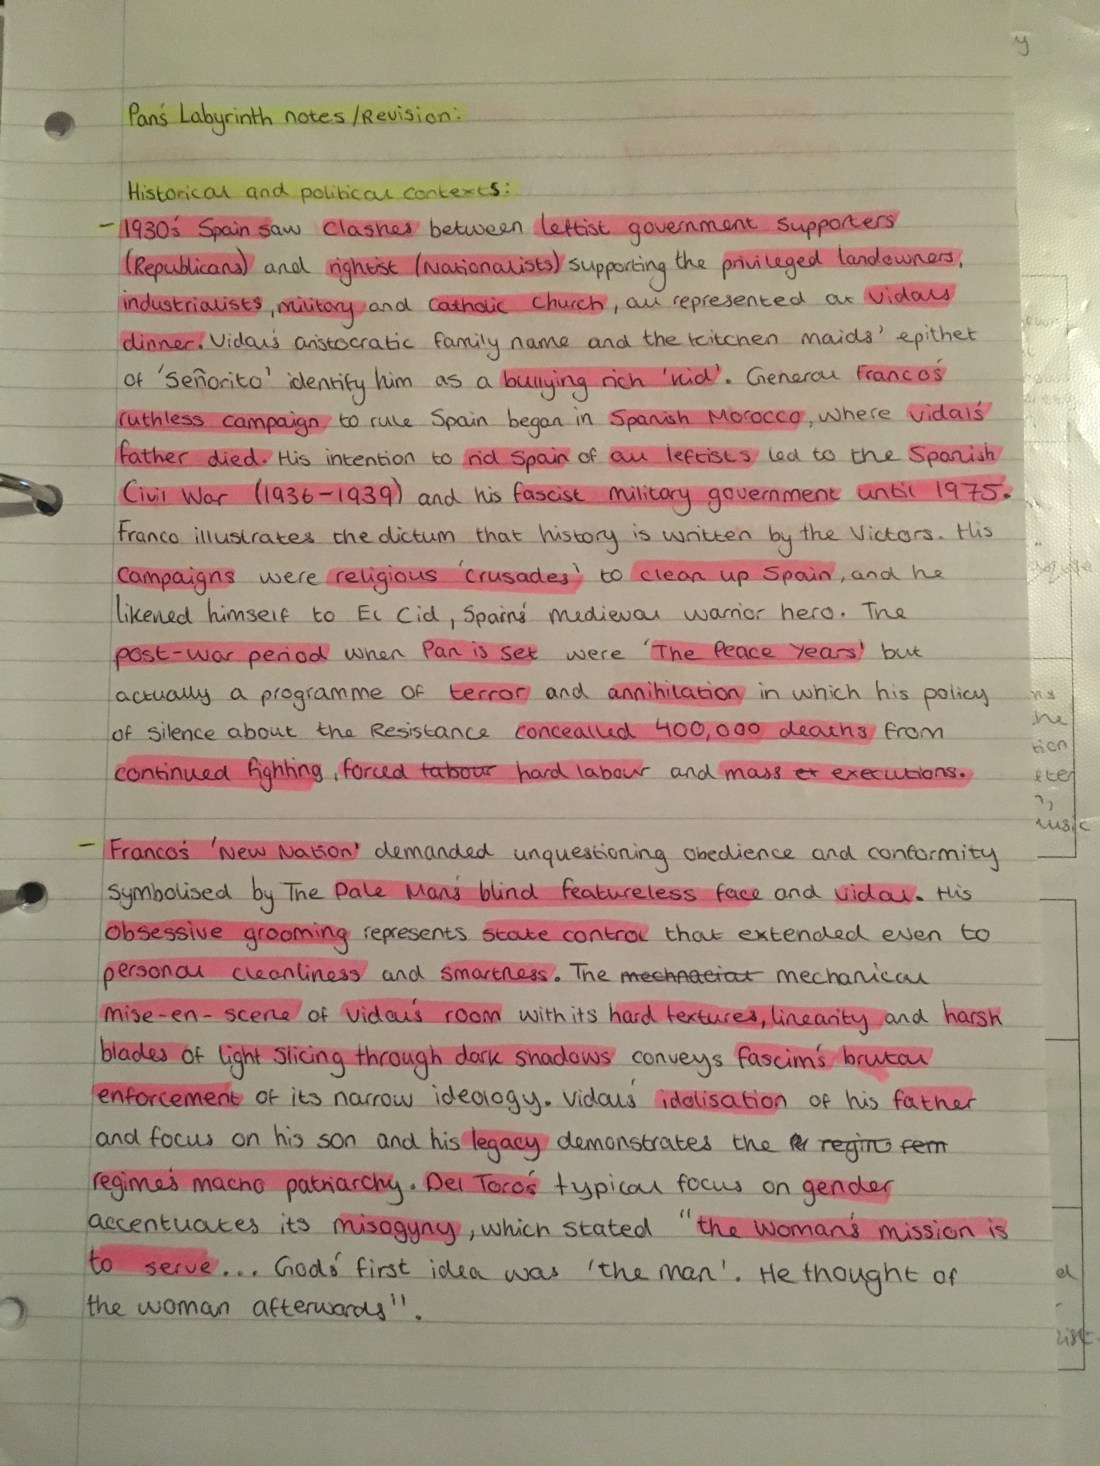 Pan's Labyrinth notes/Revision:
Historical and political contexts:
- 1930's Spain saw clashes between leftist government supporters
(Republicans) and rightist (Nationalists) supporting the privileged landowners,
industrialists, military and Catholic Church, all represented at Vidal's
dinner. Vidal's aristocratic family name and the kitchen maids' epithet
of 'Señorito' identify him as a bullying rich 'kid'. General Franco's
ruthless campaign to rule Spain began in Spanish Morocco, where Vidal's
father died. His intention to rid Spain of all leftists led to the Spanish
Civil War (1936-1939) and his fascist military government until 1975.
Franco illustrates the dictum that history is written by the Victors. His
campaigns were religious 'crusades' to clean up Spain, and he
likened himself to El Cid, Spain's medieval warrior hero. The
post-war period when Pan is set were 'The Peace Years' but
actually a programme of terror and annihilation in which his policy
of silence about the Resistance concealled 400,000 deaths from
continued fighting, forced labour hard labour and mass et executions.
- Franco's 'New Nation' demanded unquestioning obedience and conformity
symbolised by The Pale Man's blind featureless face and Vidal. His
obsessive grooming represents state control that extended even to
personal cleanliness and smartness. The mechanical
mise-en-scene of Vidal's room with its hard textures, linearity and harsh
blades of light slicing through dark shadows conveys fascim's brutal
enforcement of its narrow ideology. Vidal's idolisation of his father
and focus on his son and his legacy demonstrates the
regime's macho patriarchy. Del Toro's typical focus on gender
accentuates its misogyny, which stated "the woman's mission is
to serve... God's first idea was 'the man'. He thought of
the woman afterwards".
y
ns
he
tion
music